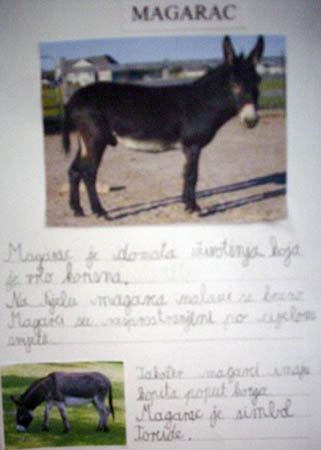 MAGARAC
Magarac je domaća životinja koja
je vrlo korisna.
Na tijelu magarca nalazi se krzno.
Magarci su rasprostranjeni po cijelome
svijetu.
Također magarci imaju
kopita poput konja.
Magarac je simbol
Torcide.